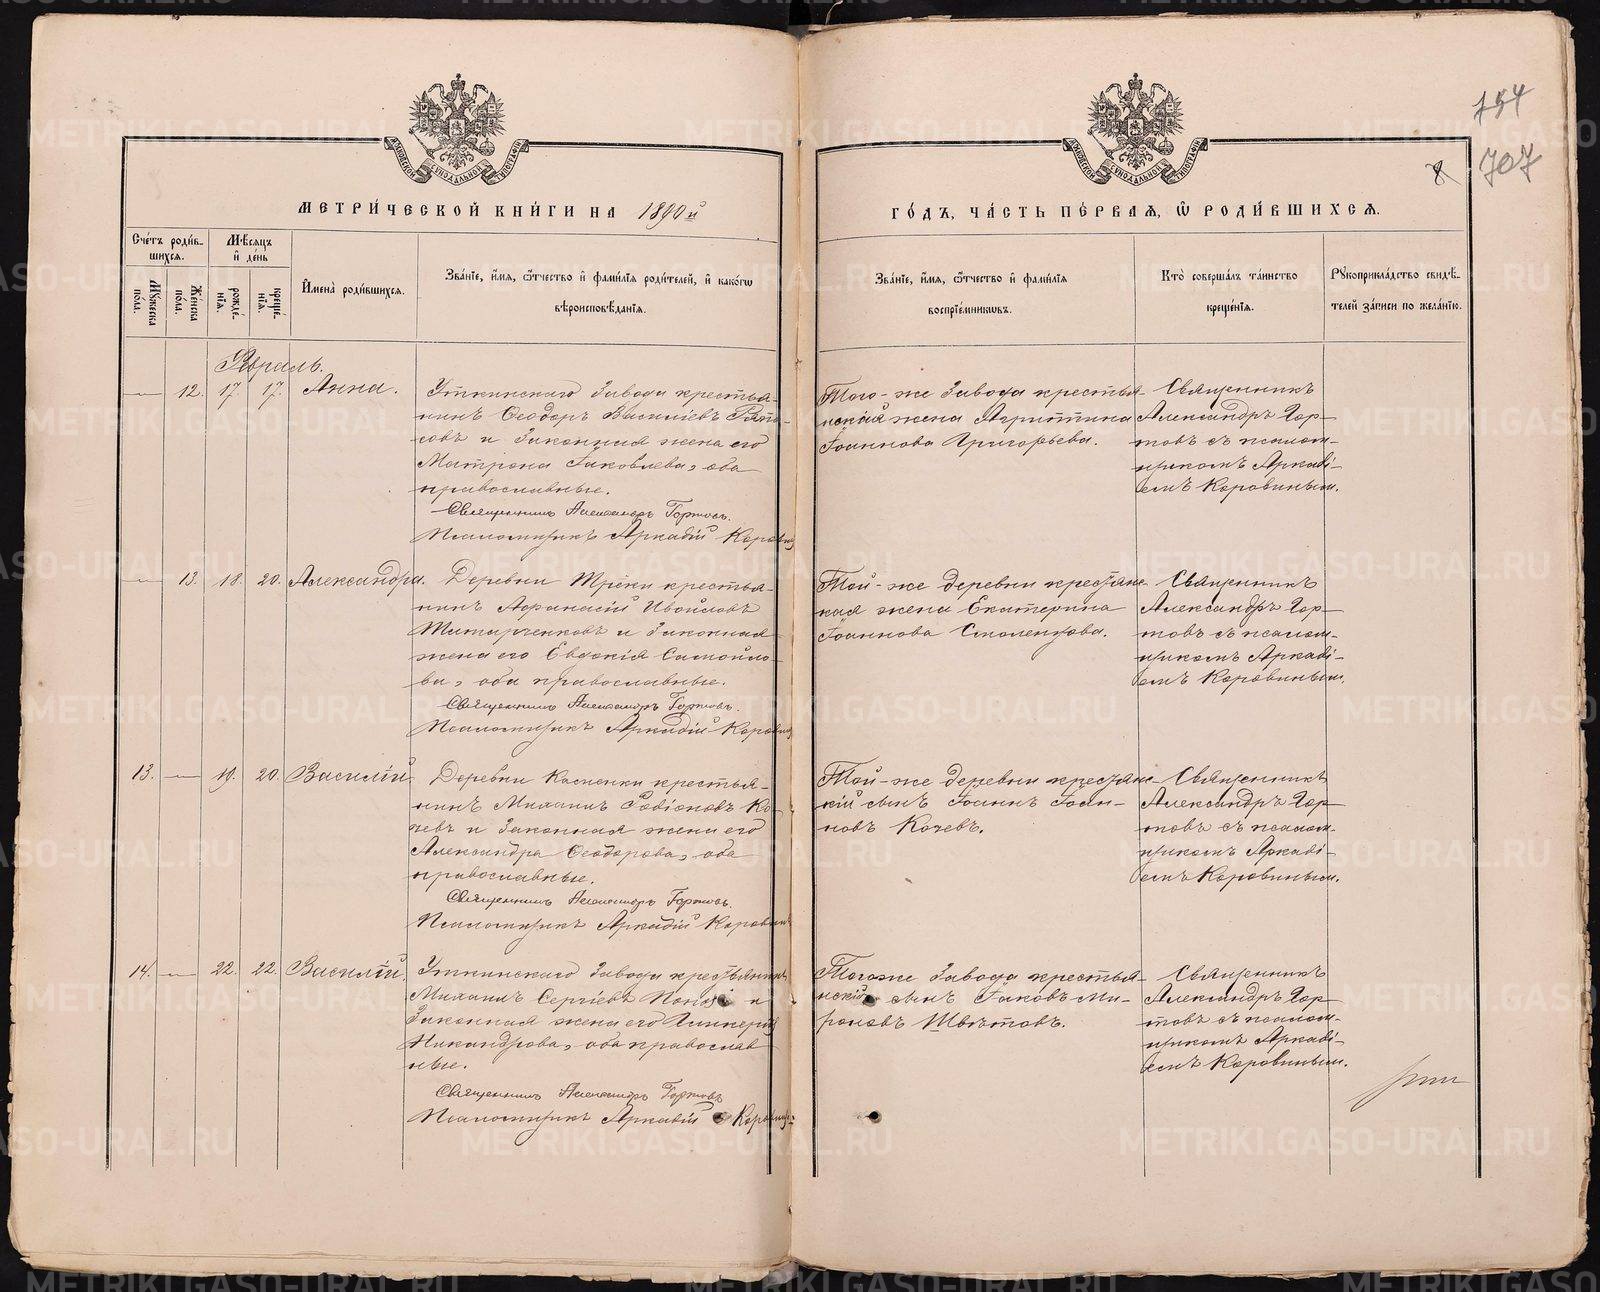 754
707
8
МЕТРИ́ЧЕСКОЙ КНИ́ГИ НА 1890й
ГО́ДЪ, ЧА́СТЬ ПЕ́РВАЯ, Ѡ҆ РОДИ́ВШИХСЯ.
Сче́тъ роди́в-
шихся.
Мꙋжеска пола.
Же́нска пола.
Мѣ́сяцъ
и҆ де́нь
рожде́-
нїя.
креще́-
нїя.
И҆мена̀ роди́вшихся.
Зва́нїе, и҆́мя, ѻ҆́тчество и҆ фами́лїя роди́телей, и҆ како́гѡ
вѣроисповѣ́данїя.
Зва́нїе, и҆́мя, ѻ҆́тчество и҆ фами́лїя
воспрїе́мникѡвъ.
Кто̀ соверша́лъ та́инство
креще́нїя.
Рꙋкоприкла́дство свидѣ́-
телей за́писи по жела́нїю.
Февраль.
— 12. 17. 17. Анна.
Уткинскаго Завода крестья-
нинъ Ѳеодоръ Василіевъ
и законная жена его
Матрона Іаковлева, оба
православные.
Священникъ Александръ Гортовъ.
Псаломщикъ Аркадій Коровинъ
Того-же Завода крестья-
нская жена Агриппина
Іоаннова Григорьева.
Священникъ
Александръ Гор-
товъ съ псалом-
щикомъ Аркаді-
емъ Коровинымъ.
— 13. 18. 20. Александра.
Деревни Треки крестья-
нинъ Аѳанасій
и законная
жена его Евдокія Самойло-
ва, оба православные.
Священникъ Александръ Гортовъ.
Псаломщикъ Аркадій Коровинъ
Той-же деревни крестьянс-
кая жена Екатерина
Іоаннова Смоленцова.
Священникъ
Александръ Гор-
товъ съ псалом-
щикомъ Аркаді-
емъ Коровинымъ.
13. — 19. 20. Василій.
Деревни Каменки крестья-
нинъ Михаилъ Родіоновъ Ко-
чевъ и законная жена его
Александра Ѳеодорова, оба
православные.
Священникъ Александръ Гортовъ.
Псаломщикъ Аркадій Коровинъ
Той-же деревни крестьянс-
кій сынъ Іоаннъ Іоан-
новъ Кочевъ.
Священникъ
Александръ Гор-
товъ съ псалом-
щикомъ Аркаді-
емъ Коровинымъ.
14. — 22. 22. Василій.
Уткинскаго Завода крестьянинъ
Михаилъ Сергіевъ и
законная жена его Гликерія
Никандрова, оба православ-
ные.
Священникъ Александръ Гортовъ
Псаломщикъ Аркадій Коровинъ
Тогоже Завода крестья-
нскій сынъ Іаковъ Ми-
роновъ Швѣтовъ.
Священникъ
Александръ Гор-
товъ съ псалом-
щикомъ Аркаді-
емъ Коровинымъ.
METRIKI.GASO-URAL.RU